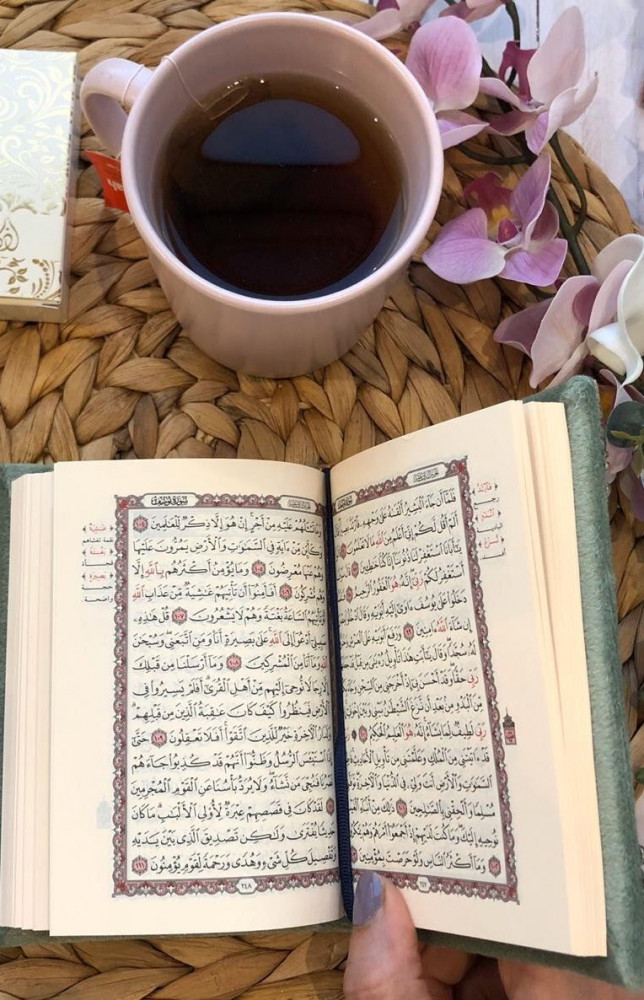 فَلَمَّآ أَن جَآءَ ٱلْبَشِيرُ أَلْقَىٰهُ عَلَىٰ وَجْهِهِۦ فَٱرْتَدَّ
أَلَمْ أَقُل لَّكُمْ إِنِّىٓ أَعْلَمُ مِنَ ٱللَّهِ مَا لَا تَعْلَمُونَ ٩٦
يَٰٓأَبَانَا ٱسْتَغْفِرْ لَنَا ذُنُوبَنَآ إِنَّا كُنَّا خَٰطِـِٔينَ
أَسْتَغْفِرُ لَكُمْ رَبِّىٓ إِنَّهُۥ هُوَ ٱلْغَفُورُ ٱلرَّحِيمُ
دَخَلُوا۟ عَلَىٰ يُوسُفَ ءَاوَىٰٓ إِلَيْهِ أَبَوَيْهِ وَقَالَ
إِن شَآءَ ٱللَّهُ ءَامِنِينَ ٩٩ وَرَفَعَ أَبَوَيْهِ عَلَى ٱلْعَرْشِ
لَهُۥ سُجَّدًا وَقَالَ يَٰٓأَبَتِ هَٰذَا تَأْوِيلُ رُءْيَٰىَ مِن قَبْلُ
رَبِّى حَقًّا وَقَدْ أَحْسَنَ بِىٓ إِذْ أَخْرَجَنِى مِنَ ٱلسِّجْنِ وَجَآءَ
مِّنَ ٱلْبَدْوِ مِنۢ بَعْدِ أَن نَّزَغَ ٱلشَّيْطَٰنُ بَيْنِى وَبَيْنَ
رَبِّى لَطِيفٌ لِّمَا يَشَآءُ إِنَّهُۥ هُوَ ٱلْعَلِيمُ ٱلْحَكِيمُ
قَدْ ءَاتَيْتَنِى مِنَ ٱلْمُلْكِ وَعَلَّمْتَنِى مِن تَأْوِيلِ ٱلْأَحَادِيثِ
ٱلسَّمَٰوَٰتِ وَٱلْأَرْضِ أَنتَ وَلِىِّۦ فِى ٱلدُّنْيَا وَٱلْءَاخِرَةِ
مُسْلِمًا وَأَلْحِقْنِى بِٱلصَّٰلِحِينَ ١٠١ ذَٰلِكَ مِنْ أَنۢبَآءِ
نُوحِيهِ إِلَيْكَ وَمَا كُنتَ لَدَيْهِمْ إِذْ أَجْمَعُوٓا۟ أَمْرَهُمْ وَهُمْ يَمْكُرُونَ
١٠٢ وَمَآ أَكْثَرُ ٱلنَّاسِ وَلَوْ حَرَصْتَ بِمُؤْمِنِينَ
٢٤٧
سورة يوسف
تَسْـَٔلُهُمْ عَلَيْهِ مِنْ أَجْرٍ إِنْ هُوَ إِلَّا ذِكْرٌ لِّلْعَٰلَمِينَ ١٠٤
وَكَأَيِّن مِّنْ ءَايَةٍ فِى ٱلسَّمَٰوَٰتِ وَٱلْأَرْضِ يَمُرُّونَ عَلَيْهَا
وَهُمْ عَنْهَا مُعْرِضُونَ ١٠٥ وَمَا يُؤْمِنُ أَكْثَرُهُم بِٱللَّهِ إِلَّا
وَهُم مُّشْرِكُونَ ١٠٦ أَفَأَمِنُوٓا۟ أَن تَأْتِيَهُمْ غَٰشِيَةٌ مِّنْ عَذَابِ ٱللَّهِ
تَأْتِيَهُمُ ٱلسَّاعَةُ بَغْتَةً وَهُمْ لَا يَشْعُرُونَ ١٠٧ قُلْ هَٰذِهِۦ
سَبِيلِىٓ أَدْعُوٓا۟ إِلَى ٱللَّهِ عَلَىٰ بَصِيرَةٍ أَنَا۠ وَمَنِ ٱتَّبَعَنِى وَسُبْحَٰنَ
ٱللَّهِ وَمَآ أَنَا۠ مِنَ ٱلْمُشْرِكِينَ ١٠٨ وَمَآ أَرْسَلْنَا مِن قَبْلِكَ
إِلَّا رِجَالًا نُّوحِىٓ إِلَيْهِم مِّنْ أَهْلِ ٱلْقُرَىٰٓ أَفَلَمْ يَسِيرُوا۟ فِى
ٱلْأَرْضِ فَيَنظُرُوا۟ كَيْفَ كَانَ عَٰقِبَةُ ٱلَّذِينَ مِن قَبْلِهِمْ
وَلَدَارُ ٱلْءَاخِرَةِ خَيْرٌ لِّلَّذِينَ ٱتَّقَوْا۟ أَفَلَا تَعْقِلُونَ ١٠٩ حَتَّىٰٓ
إِذَا ٱسْتَيْـَٔسَ ٱلرُّسُلُ وَظَنُّوٓا۟ أَنَّهُمْ قَدْ كُذِبُوا۟ جَآءَهُمْ
نَصْرُنَا فَنُجِّىَ مَن نَّشَآءُ وَلَا يُرَدُّ بَأْسُنَا عَنِ ٱلْقَوْمِ ٱلْمُجْرِمِينَ
لَقَدْ كَانَ فِى قَصَصِهِمْ عِبْرَةٌ لِّأُو۟لِى ٱلْأَلْبَٰبِ مَا كَانَ
حَدِيثًا يُفْتَرَىٰ وَلَٰكِن تَصْدِيقَ ٱلَّذِى بَيْنَ يَدَيْهِ
وَتَفْصِيلَ كُلِّ شَىْءٍ وَهُدًى وَرَحْمَةً لِّقَوْمٍ يُؤْمِنُونَ ١١١
٢٤٨